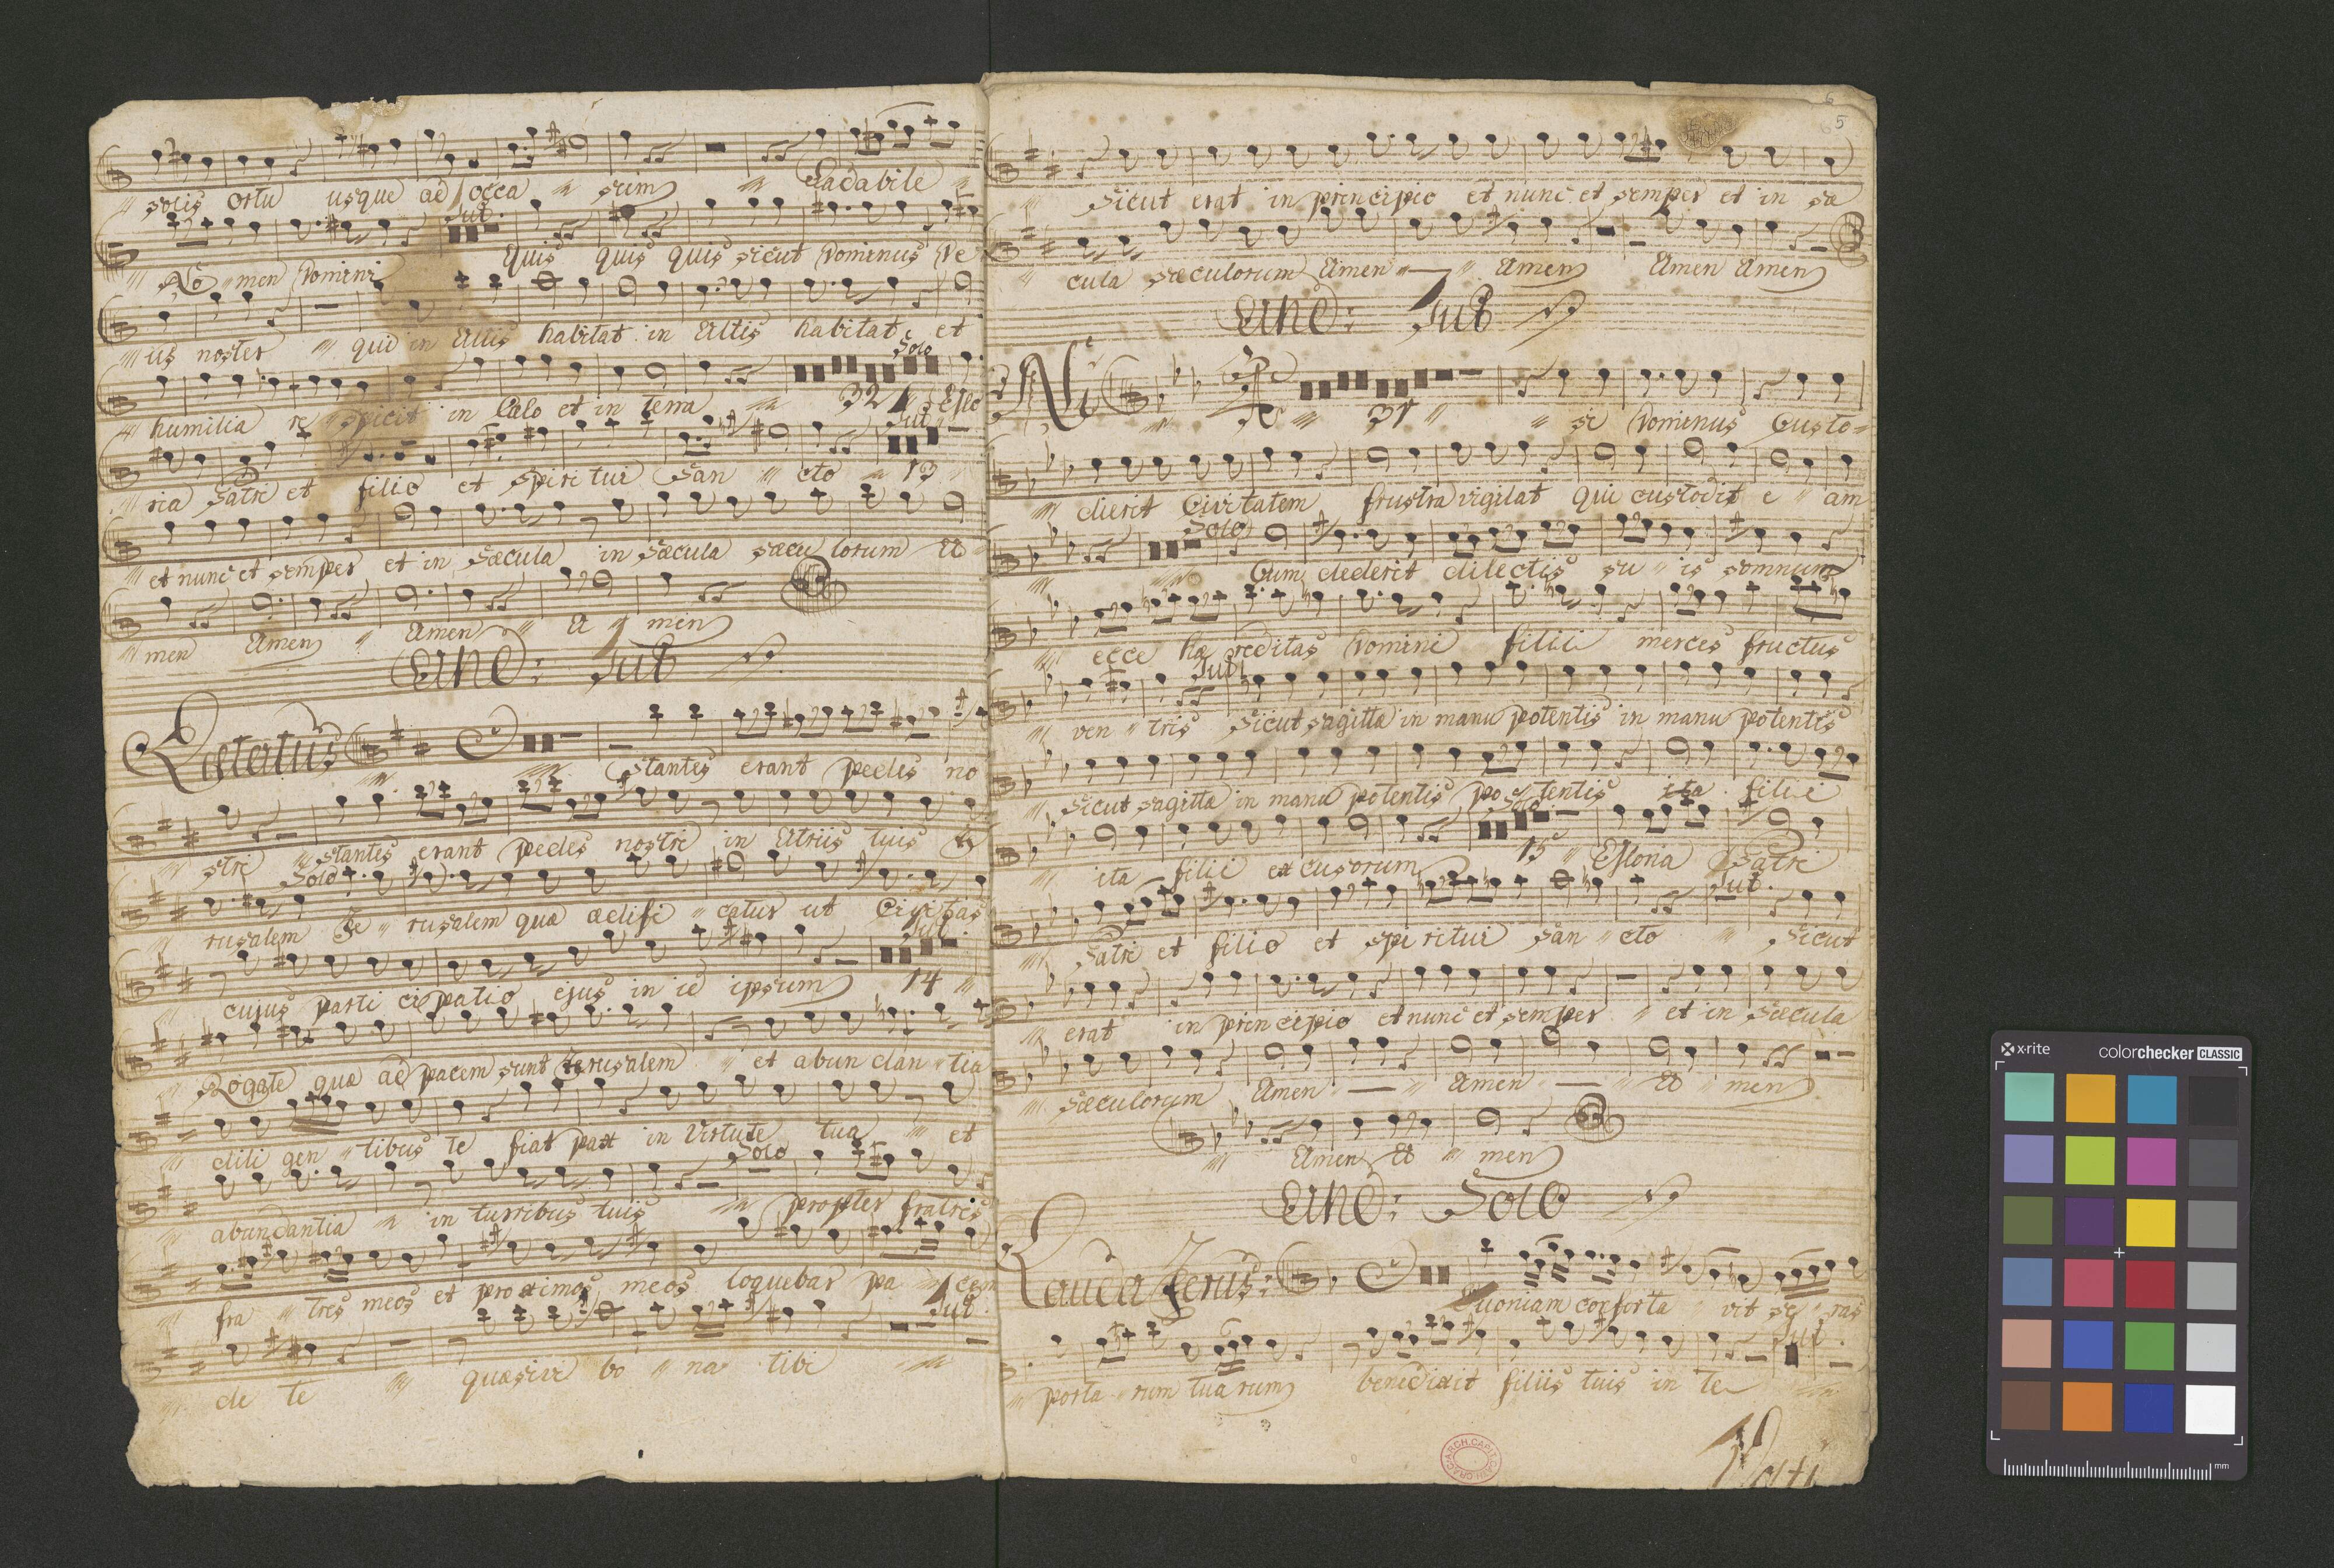 solis ortu usque ad occa sum Laudabile
Tut.
No men Domini quis quis quis sicut Dominus De
us noster qui in Altis habitat in Altis habitat et
Solo
humilia re spicit in Cælo et in terra 32 Glo
Tut.
ria Patri et filio et spiri tui San cto 13
et nunc et semper et in Sæcula in Sæcula sæcu lorum A
men Amen Amen A men
Tut
Lætatus Stantes erant pedes no
stri stantes erant pedes nostri in Atriis tuis Je
Solo
rusalem Je rusalem quæ ædifi catur ut Civitas
Tut.
cujus parti cipatio ejus in id ipsum 14
Rogate quæ ad pacem sunt Jerusalem et abun dan tia
dili gen tibus te fiat pax in Virtute tua et
Solo
abundantia in turribus tuis propter fratres
fra tres meos et proximos meos loquebar pa cem
Tut.
de te quæsivi bo na tibi
6
5
Sicut erat in principio et nunc et semper et in sæ
cula sæculorum Amen Amen Amen Amen
Tut
Ni 31 si Dominus Custo=
dierit Civitatem frustra vigilat qui custodit e am
Solo
Cum dederit dilectis su is somnum
ecce hæ reditas Domini filii merces fructus
Tut
ven tris Sicut sagitta in manu potentis in manu potentis
Sicut sagitta in manu potentis po tentis ita filii
Solo
ita filii excusorum 15 Gloria Patri
Tut.
Patri et filio et spi ritui San cto Sicut
erat in principio et nunc et semper et in Sæcula
Sæculorum Amen Amen A men
Amen A men
Solo
Lauda Jerus: Quoniam conforta vit se ras
Tut.
porta rum tuarum benedixit filiis tuis in te
Volti
x-rite colorchecker CLASSIC
mm